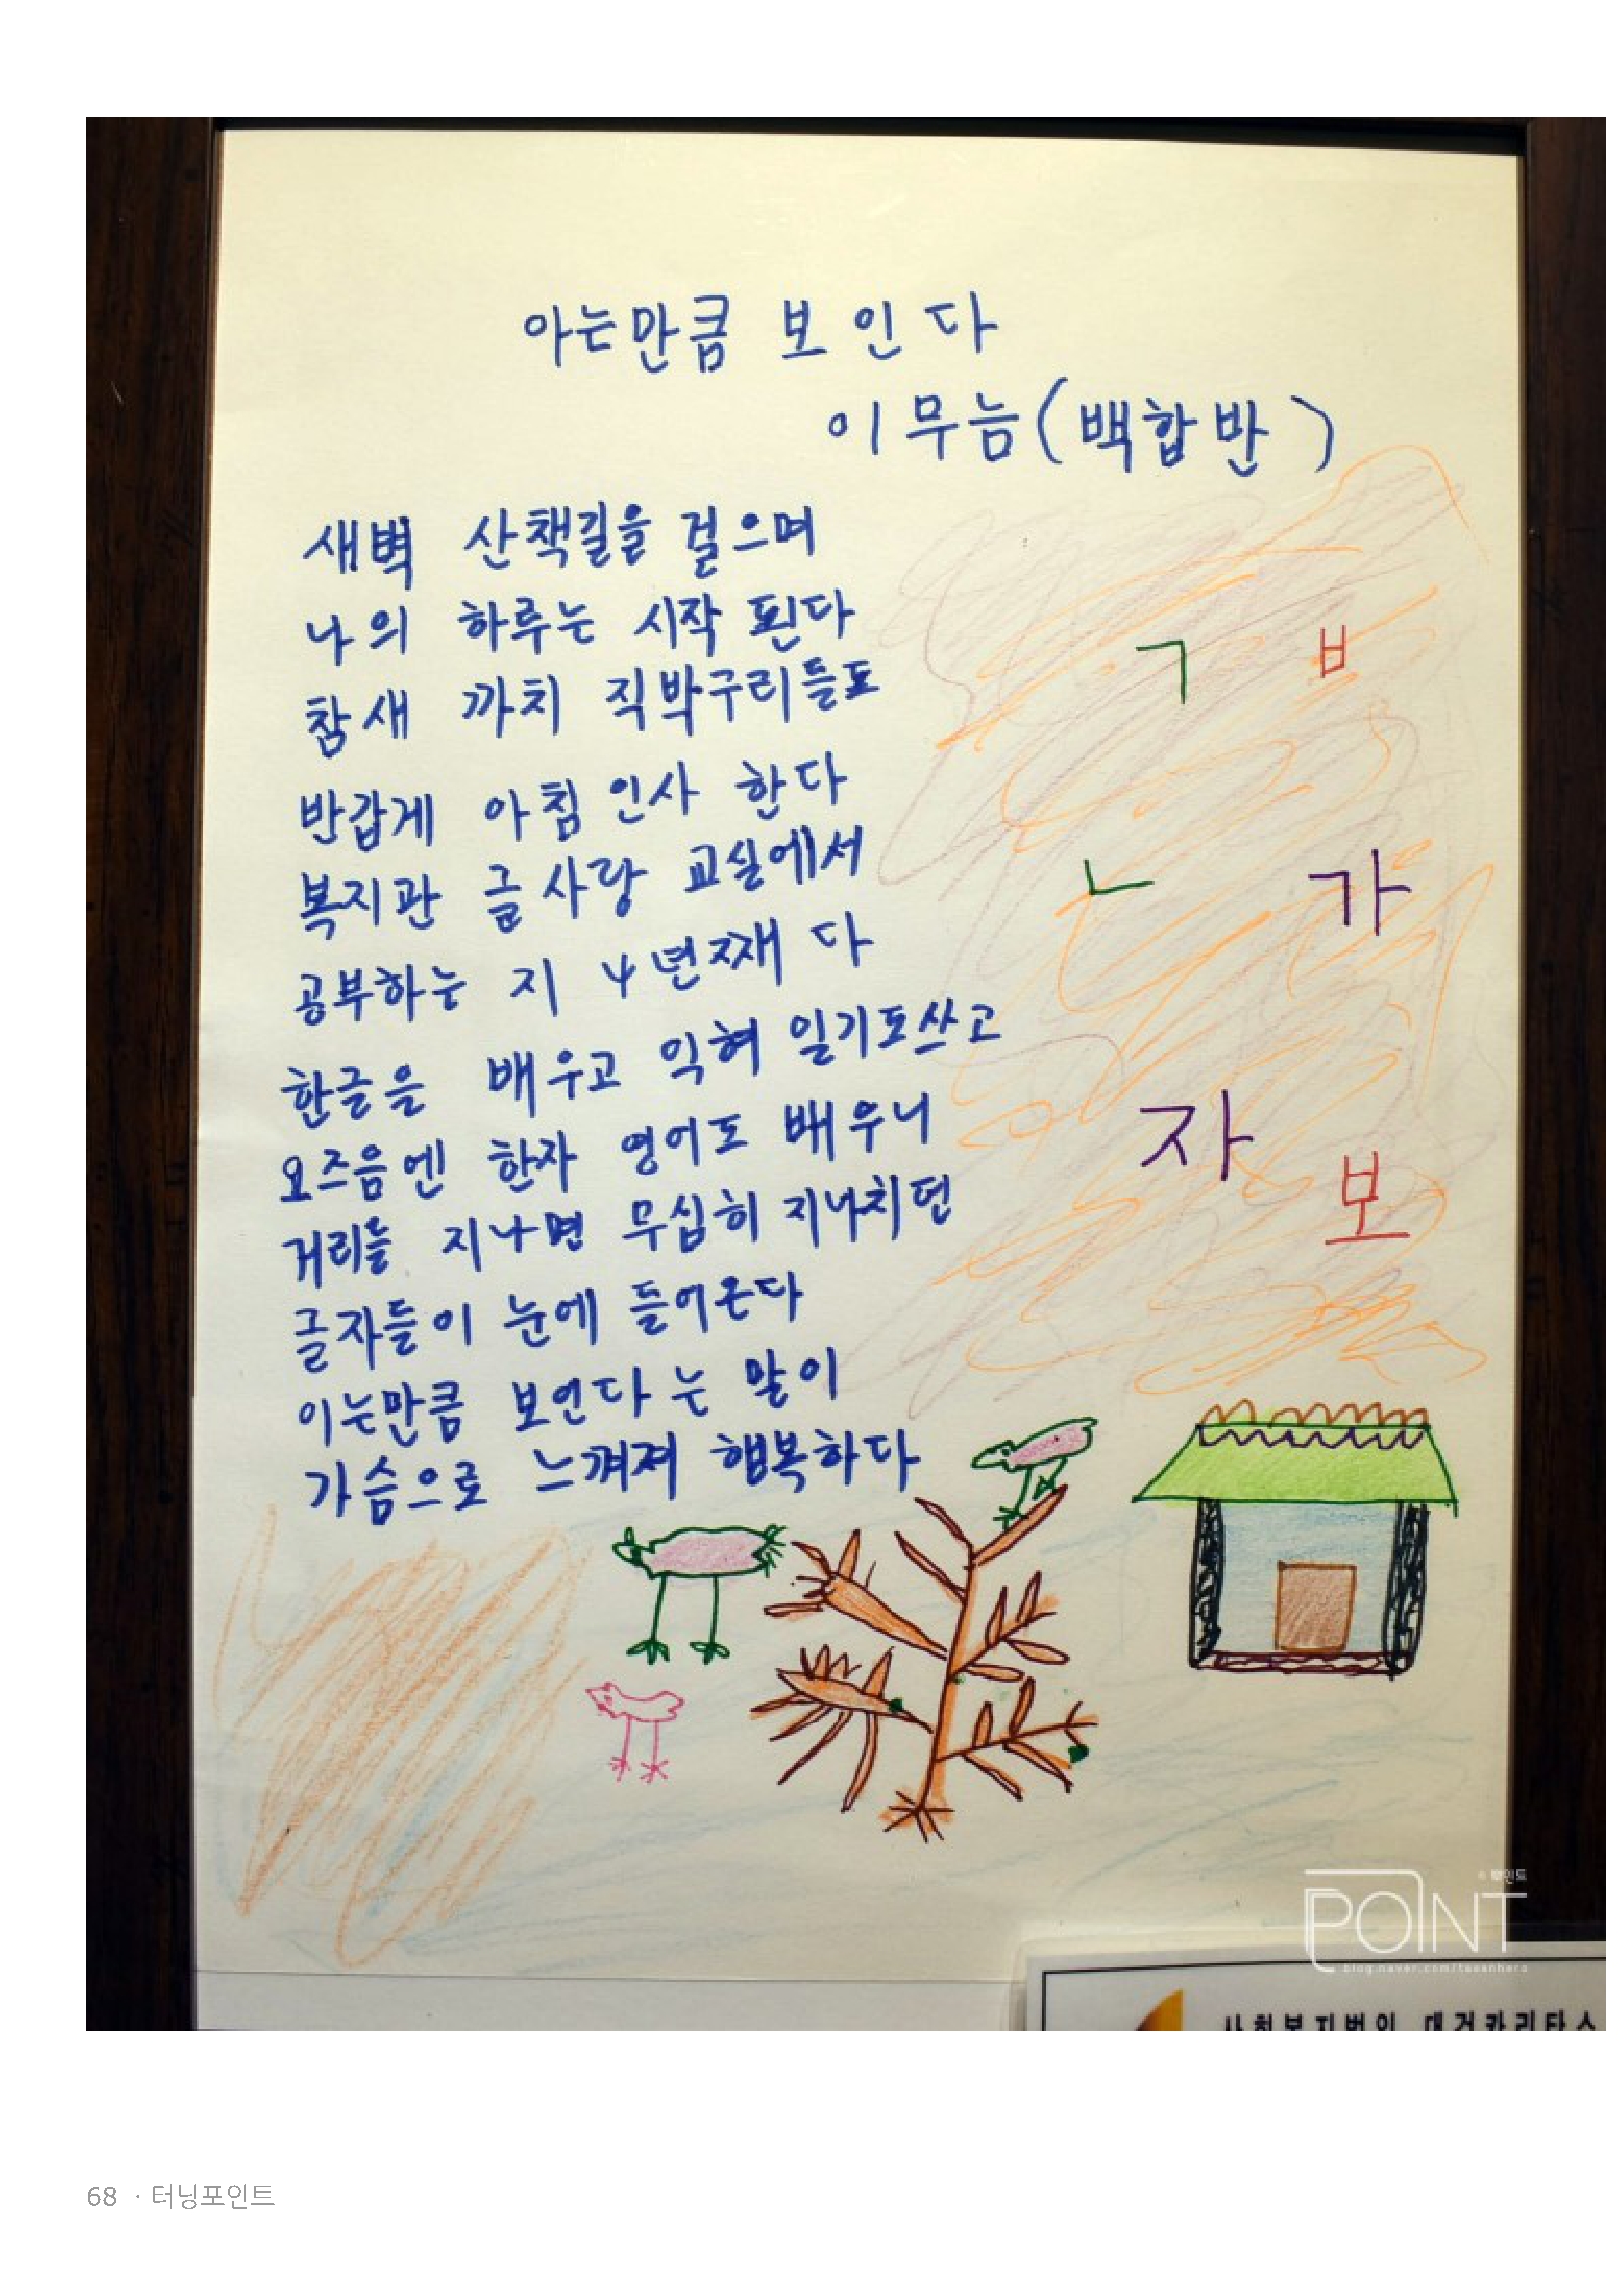 아는만큼 보인다
이무늠(백합반)
새벽 산책길을 걸으며
나의 하루는 시작 된다
참새 까치 직박구리들도
반갑게 아침 인사 한다
복지관 글사랑 교실에서
공부하는 지 4년째 다
한글을 배우고 익혀 일기도쓰고
요즈음엔 한자 영어도 배우니
거리를 지나면 무심히 지나치던
글자들이 눈에 들어온다
아는만큼 보인다는 말이
가슴으로 느껴져 행복하다
ㄱ ㅂ
ㄴ 가
자 보
POINT
blog.naver.com/
사회복지법인 대건카리타스
68 · 터닝포인트